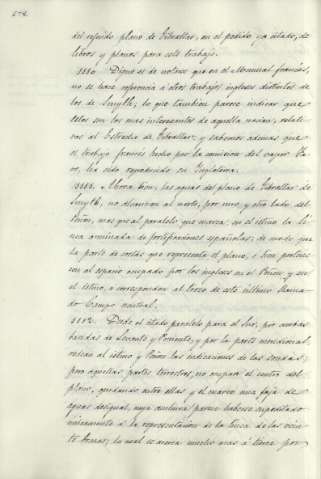 del referido plano de Gibraltar, en el pedido ya citado, de
libros y planos para este trabajo.
1110. Digno es de notarse que en el Memorial francés,
no se hace referencia a otros trabajos ingleses distintos de
los de Smyth; lo que tambien parece indicar que
estos son los mas interesantes de aquella nacion, relati-
vos al Estrecho de Gibraltar; y sabemos ademas que
el trabajo francés hecho por la comision del vapor
ha sido reproducido en Inglaterra.
1111. Ahora bien, las aguas del plano de Gibraltar de
Smyth, no alcanzan al norte, por uno y otro lado del
Peñon, mas que al paralelo que marca en el istmo la lí-
nea arruinada de fortificaciones españolas; de modo que
la parte de costas que representa el plano, o bien pertene-
cen al espacio ocupado por los ingleses en el Peñon y en
el istmo, o corresponden al trozo de este último llama-
do Campo neutral.
1112. Desde el citado paralelo para el Sur, por ambas
bandas de Levante y Poniente, y por la parte meridional,
rodean al istmo y Peñon las indicaciones de las sondas;
pero aquellas partes terrestres, no ocupan el centro del
plano, quedando entre ellas y el marco una faja de
aguas desigual, cuya anchura parece haberse supeditado
únicamente a la representacion de la línea de las vein-
te brazas; la cual se acerca mucho mas a tierra por